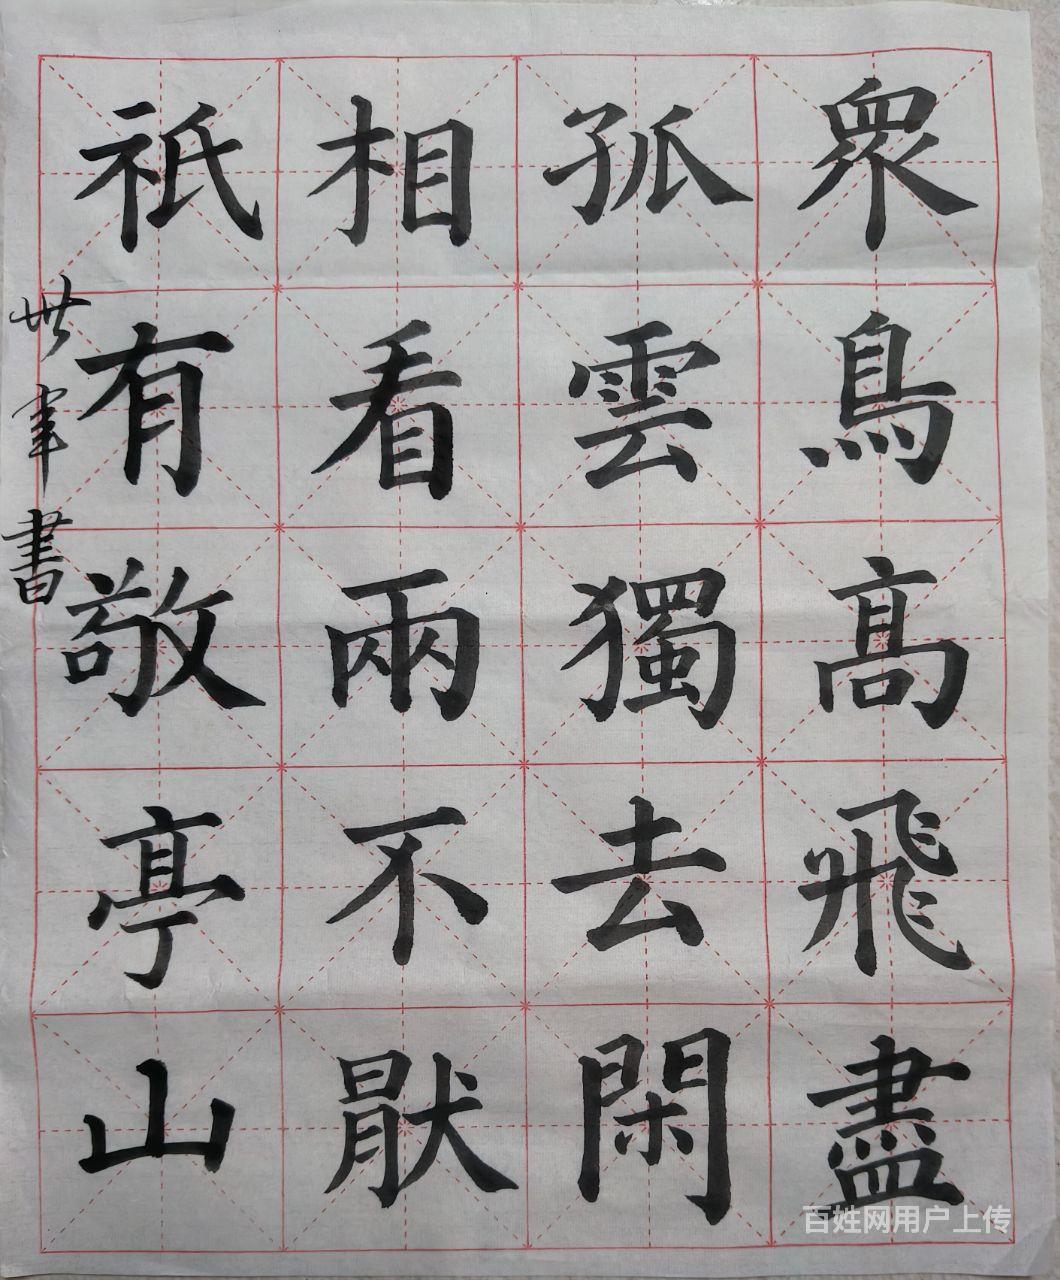 眾鳥髙飛盡
孤雲獨去閑
相看兩不猒
祇有敬亭山
世軍書
百姓网用户上传